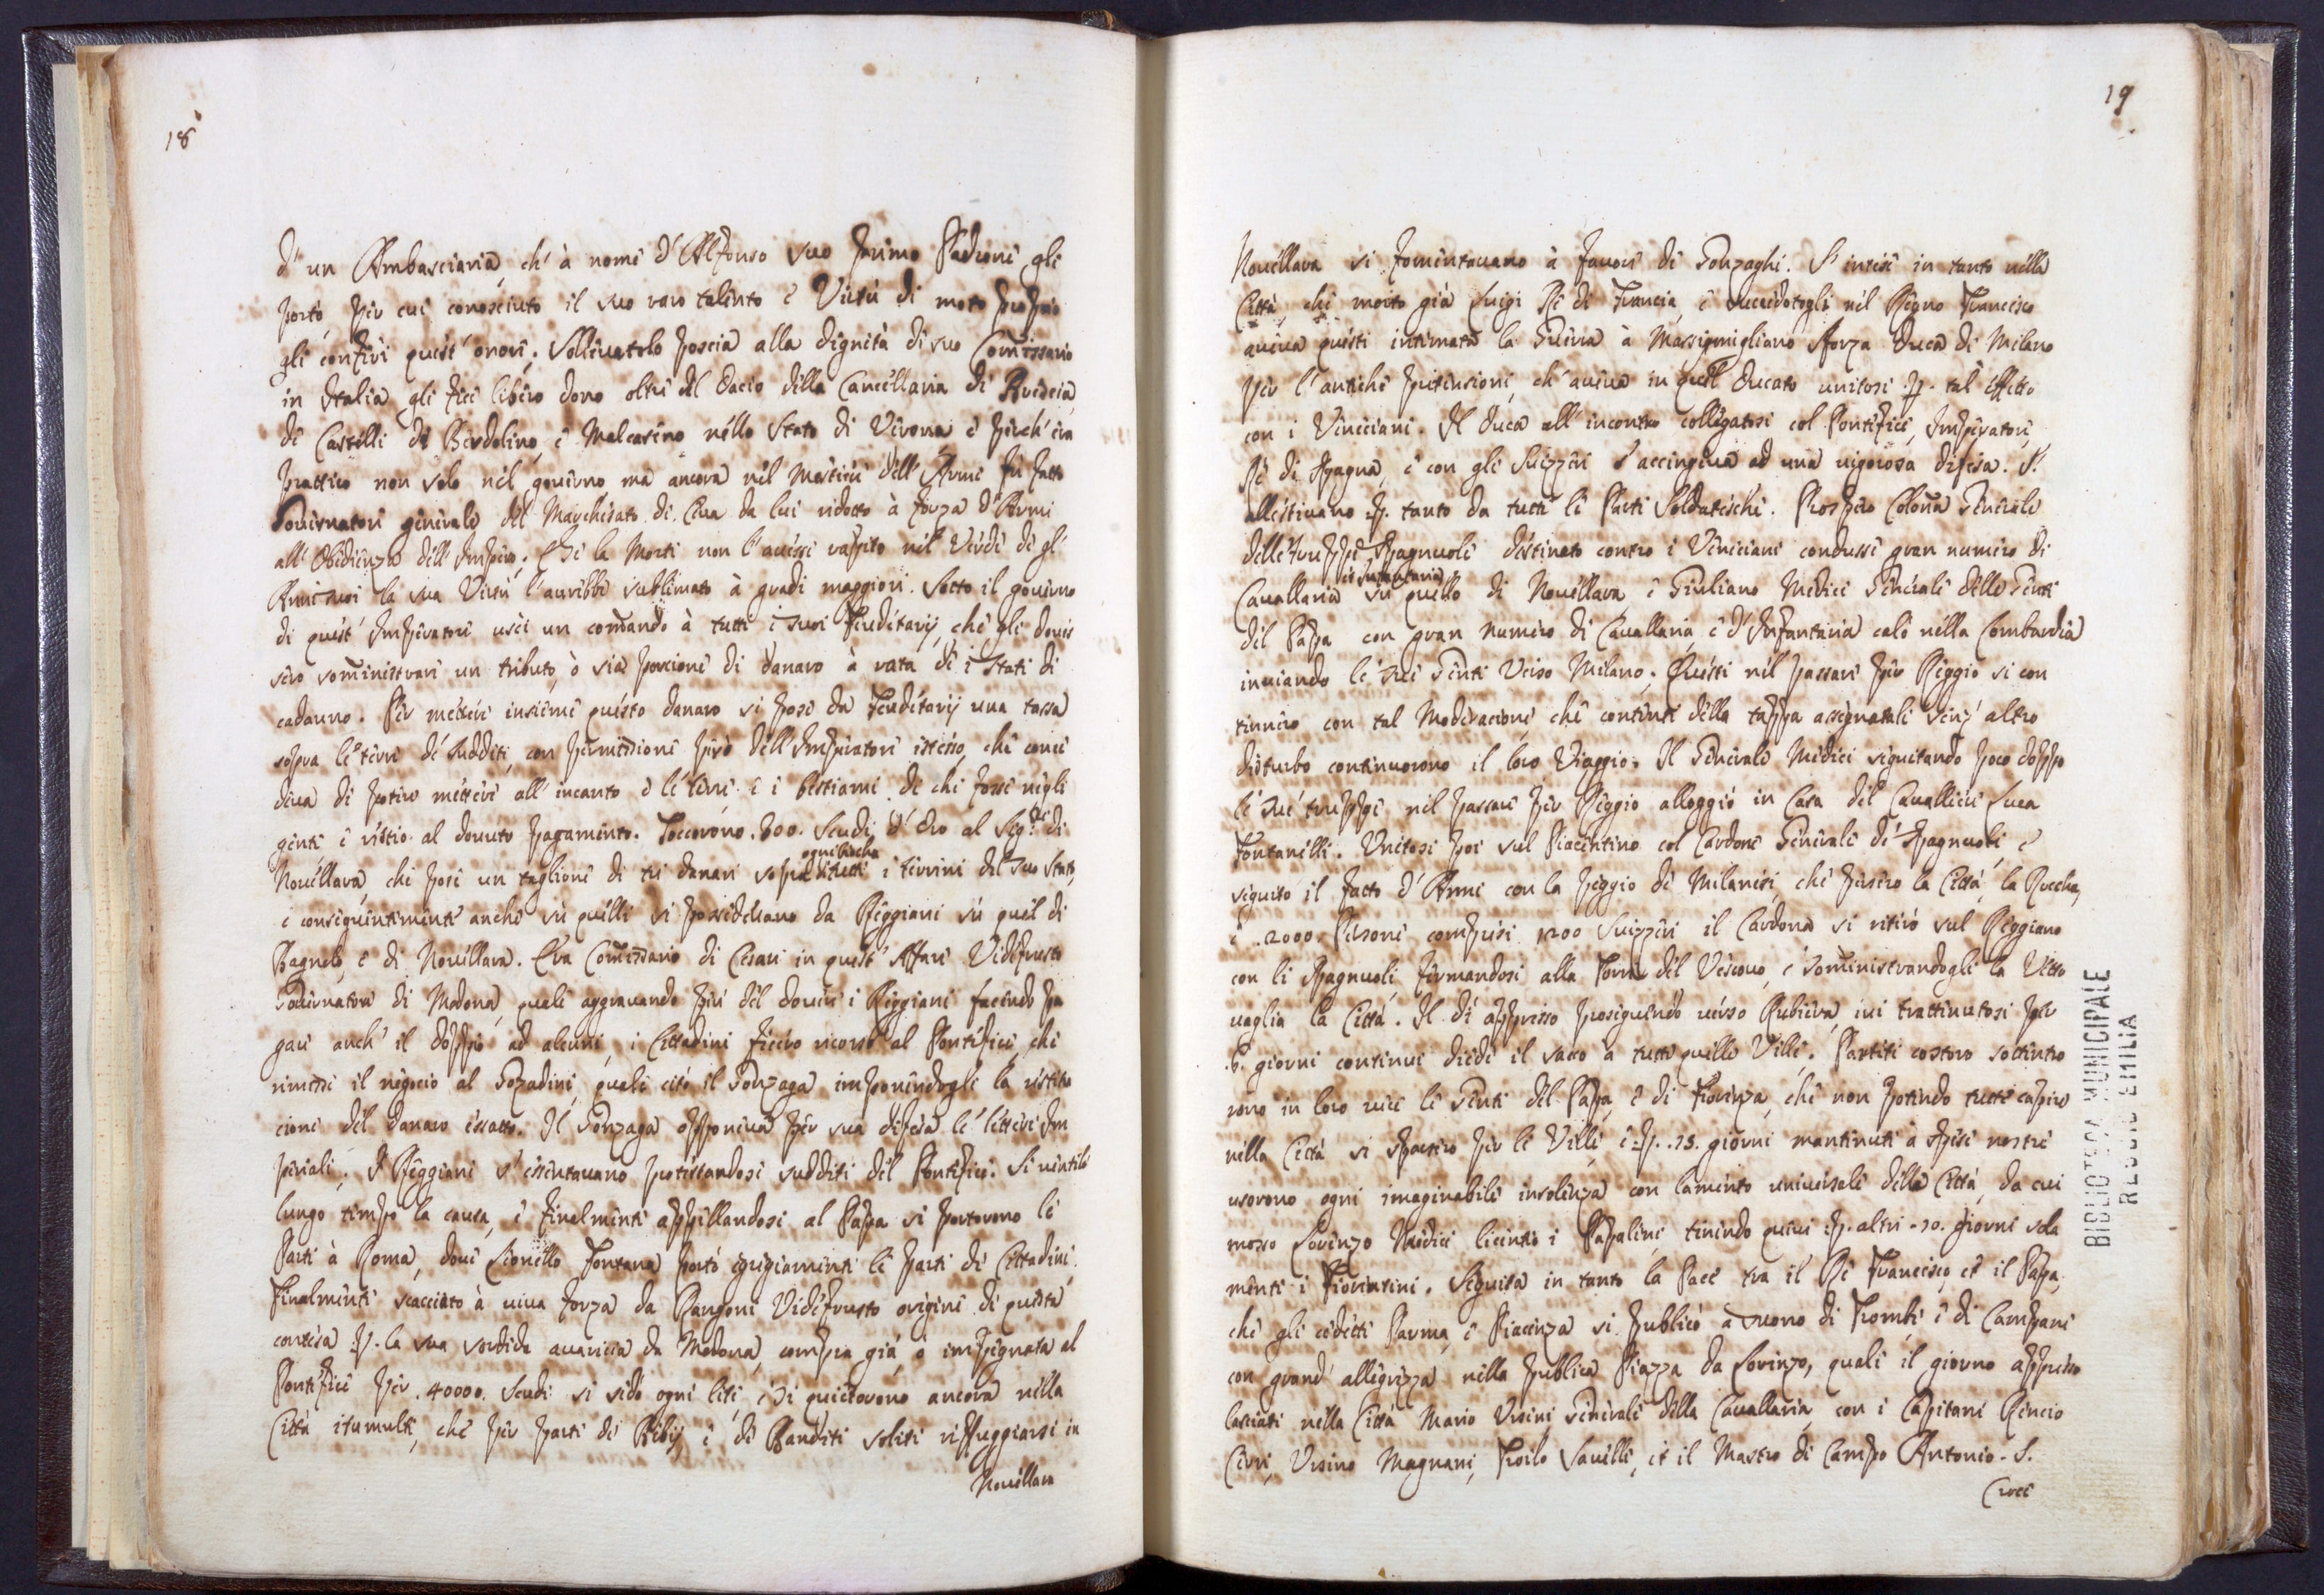 18
d' un Ambasciaria, ch' à nome d' Alfonso suo primo Padrone gli
portò, per cui conosciuto il suo raro talento e Virtù di moto proprio
gli conferì quest' onore. Sollevatolo poscia alla dignità di suo Comissario
in Italia gli fece libero dono oltre del dacio della Cancellaria di Brescia,
de Castelli di Bardolino, e Malcesine nello Stato di Verona e perch' era
prattico non solo nel governo ma ancora nel Mestiere dell' Armi fu fatto
Governatore generale del Marchesato di Ceva da lui ridotto à forza d' Armi
all' Obedienza dell' Impero. E se la Morte non l' avesse rapito nel Verde de gl'
Anni suoi la sua Virtù l' aurebbe sublimato à gradi maggiori. Sotto il governo
di quest' Imperatore uscì un comando à tutti i suoi Feudetarij, che gli doves
sero somministrare un tributo, ò sia porcione di danaro à rata de i Stati di
cadauno. Per mettere insieme questo danaro si pose da Feudetarij una tassa
sopra le terre de' sudditi, con permissione però dell' Imperatore istesso, che conce
deva di poter mettere all' incanto e le terre e i bestiami di chi fosse negli
gente e restio al dovuto pagamento. Toccorono .800. Scudi d' Oro al Sig.re di
Novellara, che pose un taglione di tre danari sopra di tutti i terreni del suo Stato,
ogni biolcha
e conseguentemente anche sù quelli si possedevano da Reggiani sù quel di
Bagnolo, e di Novellara. Era Comissario di Cesare in quest' Affare Videfrusto
Governatore di Modona, quale aggravando più del dovere i Reggiani facendo pa
gare anch' il doppio ad alcuni, i Cittadini fecero ricorso al Pontefice, che
rimesse il negocio al Gozadini, quale citò il Gonzaga imponendogli la restitu
cione del danaro esatto. Il Gonzaga opponeva per sua difesa le lettere Im
periali. I Reggiani s' esentavano protestandosi sudditi del Pontefice. Si ventilò
lungo tempo la causa, e finalmente appellandosi al Papa si portorono le
Parti à Roma, dove Lionello Fontana portò egregiamente le parti de Cittadini.
Finalmente scacciato à viva forza da Rangoni Videfrusto origine di questa
contesa p. la sua sordida avaricia da Modona, compra già, ò impegnata al
Pontefice per .40000. Scudi si sedò ogni lite, e si quietorono ancora nella
Città i tumulti, che per parte de Bebij, e de Banditi soliti riffuggiarsi in
Novellara
19
Novellara si fomentavano à favore de Gonzaghi. S' intese in tanto nella
Città, che morto già Luigi Rè di Francia, e succedutogli nel Regno Francesco
aveva questi intimata la Guerra à Massimigliano Sforza Duca di Milano
per l' antiche pretensioni, ch' aveva in quel Ducato unitosi p. tal effetto
con i Veneciani. Il Duca all' incontro collegatosi col Pontefice, Imperatore,
Rè di Spagna, e con gli Svizzeri s' accingeva ad una vigorosa difesa. S'
allestivano p. tanto da tutte le Parti Soldatesche. Prospero Colonna Generale
delle truppe Spagnuole destinato contro i Veneciani condusse gran numero di
Cavallaria sù quello di Novellara, e Giuliano Medici Generale delle Genti
et Infantaria
del Papa con gran numero di Cavallaria, e d' Infantaria calò nella Combardia
inviando le sue Genti verso Milano. Questi nel passare per Reggio si con
tennero con tal Moderacione, che contenti della tappa assegnatali senz' altro
disturbo continuorono il loro Viaggio. Il Generale Medici seguitando poco doppo
le sue truppe nel passare per Reggio alloggiò in Casa del Cavalliere Luca
Fontanelli. Unitosi poi sul Piacentino col Cardone Generale de' Spagnuoli, e
seguito il fatto d' Armi con la peggio de Milanesi, che persero la Città, la Roccha,
e .2000. Persone comprese 1200 Svizzeri il Cardona si ritirò sul Reggiano
con li Spagnuoli, fermandosi alla Torre del Vescovo, e somministrandogli la Vetto
vaglia la Città. Il dì appresso proseguendo verso Rubiera, ivi trattenutosi per
.6. giorni continui diede il sacco a tutte quelle Ville. Partiti costoro sottentro
rono in loro vece le Genti del Papa, e di Fiorenza, che non potendo tutte capire
nella Città si sparsero per le Ville, e p. .15. giorni mantenuti à spese nostre
usorono ogni imaginabile insolenza con lamento universale della Città, da cui
mosso Lorenzo Medici licentiò i Papalini, tenendo quivi p. altri .10. giorni sola
mente i Fiorentini. Seguita in tanto la Pace tra il Rè Francesco, et il Papa,
che gli cedette Parma, e Piacenza si publicò a suono di Trombe e di Campane
con grand' allegrezza nella publica Piazza da Lorenzo, quale il giorno appresso
lasciati nella Città Mario Ursini Generale della Cavallaria, con i Capitani Rencio
Cerri, Ursino Magnani, Troilo Savelli, et il Mastro di Campo Antonio S.
Croce
BIBLIOTECA MUNICIPALE
REGGIO EMILIA